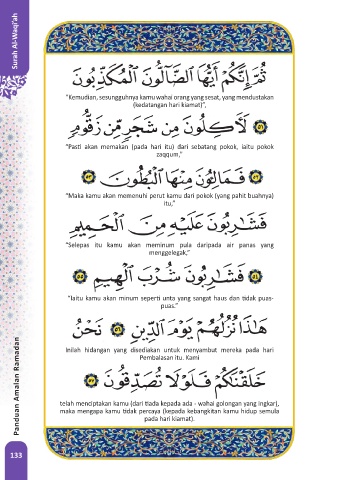 Surah Al-Waqi'ah
ثُمَّ إِنَّكُمْ أَيُّهَا ٱلضَّآلُّونَ ٱلْمُكَذِّبُونَ
"Kemudian, sesungguhnya kamu wahai orang yang sesat, yang mendustakan
(kedatangan hari kiamat)",
٥١ لَءَاكِلُونَ مِن شَجَرٍ مِّن زَقُّومٍ
"Pasti akan memakan (pada hari itu) dari sebatang pokok, iaitu pokok
zaqqum,"
٥٢ فَمَالِـُٔونَ مِنْهَا ٱلْبُطُونَ ٥٣
"Maka kamu akan memenuhi perut kamu dari pokok (yang pahit buahnya)
itu,"
فَشَٰرِبُونَ عَلَيْهِ مِنَ ٱلْحَمِيمِ
"Selepas itu kamu akan meminum pula daripada air panas yang
menggelegak,"
٥٤ فَشَٰرِبُونَ شُرْبَ ٱلْهِيمِ ٥٥
"Iaitu kamu akan minum seperti unta yang sangat haus dan tidak puas-
puas."
هَٰذَا نُزُلُهُمْ يَوْمَ ٱلدِّينِ ٥٦ نَحْنُ
Inilah hidangan yang disediakan untuk menyambut mereka pada hari
Pembalasan itu. Kami
خَلَقْنَٰكُمْ فَلَوْلَا تُصَدِّقُونَ ٥٧
telah menciptakan kamu (dari tiada kepada ada - wahai golongan yang ingkar),
maka mengapa kamu tidak percaya (kepada kebangkitan kamu hidup semula
pada hari kiamat).
Panduan Amalan Ramadan
133